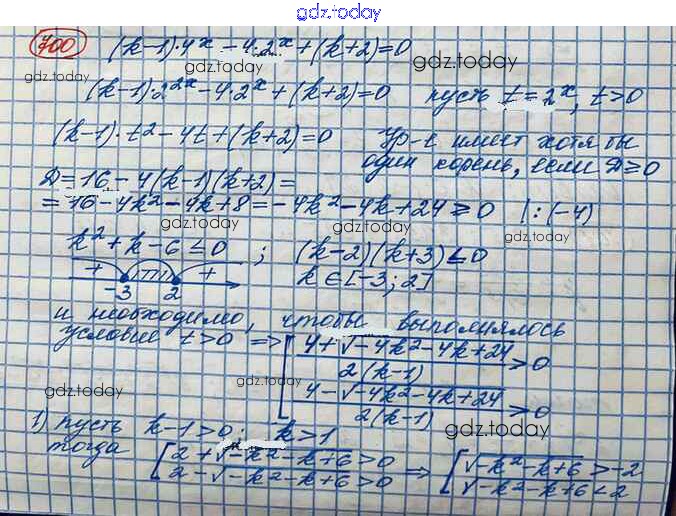 gdz.today
700 (k-1)·4ˣ-4·2ˣ+(k+2)=0
gdz.today gdz.today gdz.today
(k-1)·2²ˣ-4·2ˣ+(k+2)=0 пусть t=2ˣ, t>0
(k-1)·t²-4t+(k+2)=0 Ур-е имеет хотя бы
один корень, если D≥0
gdz.today gdz.today
D=16-4(k-1)(k+2)=
=16-4k²-4k+8=-4k²-4k+24≥0 |:(-4)
gdz.today gdz.today
k²+k-6≤0 ; (k-2)(k+3)≤0
+ + k∈[-3;2]
-3 2
и необходимо, чтобы выполнялось
условие t>0 ⇒ [ (4+√(-4k²-4k+24))/(2(k-1))>0
(4-√(-4k²-4k+24))/(2(k-1))>0
gdz.today gdz.today gdz.today
1) пусть k-1>0; k>1
gdz.today
тогда [ 2+√(-k²-k+6)>0 ⇒ [ √(-k²-k+6)>-2
2-√(-k²-k+6)>0 √(-k²-k+6)<2
gdz.today gdz.today